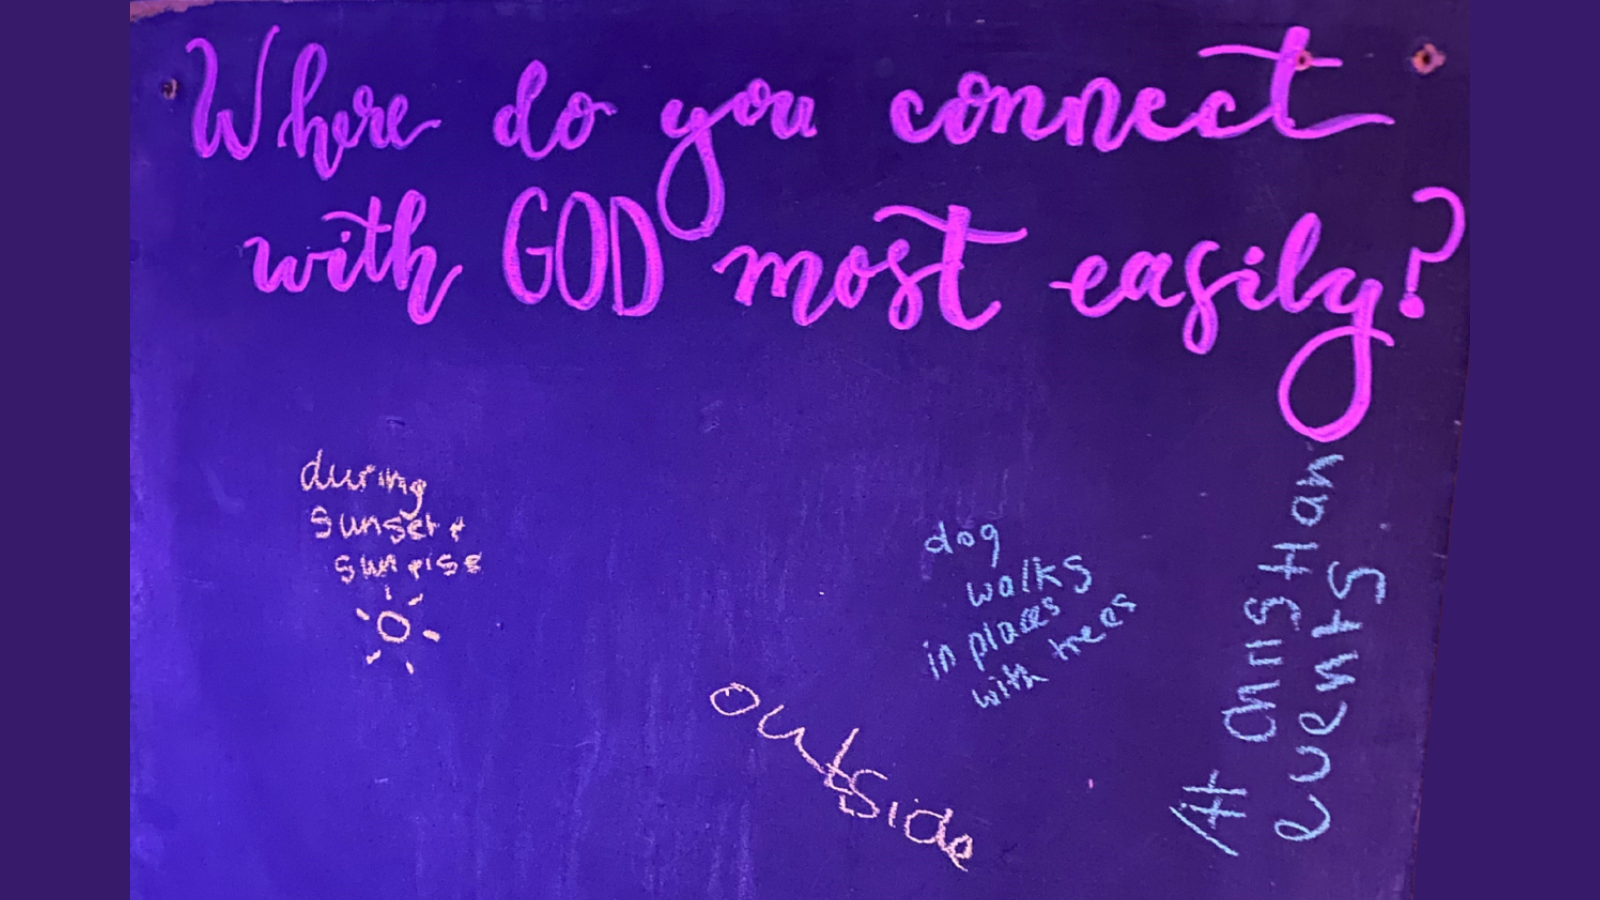 Where do you connect
with GOD most easily?
during
sunset +
sunrise
dog
walks
in places
with trees
outside
At Christian
events